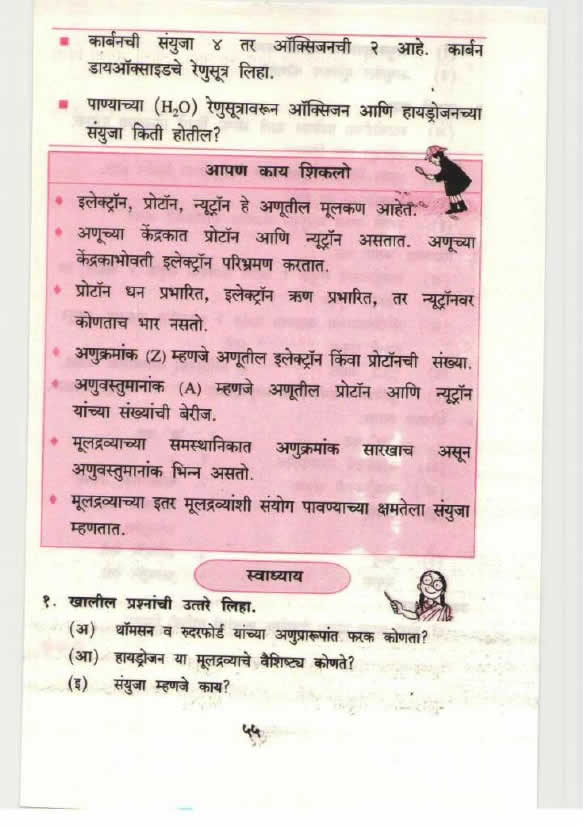 कार्बनची संयुजा ४ तर ऑक्सिजनची २ आहे. कार्बन
डायऑक्साइडचे रेणुसूत्र लिहा.
पाण्याच्या (H₂O) रेणुसूत्रावरून ऑक्सिजन आणि हायड्रोजनच्या
संयुजा किती होतील?
आपण काय शिकलो
इलेक्ट्रॉन, प्रोटॉन, न्यूट्रॉन हे अणूतील मूलकण आहेत.
अणूच्या केंद्रकात प्रोटॉन आणि न्यूट्रॉन असतात. अणूच्या
केंद्रकाभोवती इलेक्ट्रॉन परिभ्रमण करतात.
प्रोटॉन धन प्रभारित, इलेक्ट्रॉन ऋण प्रभारित, तर न्यूट्रॉनवर
कोणताच भार नसतो.
अणुक्रमांक (Z) म्हणजे अणूतील इलेक्ट्रॉन किंवा प्रोटॉनची संख्या.
अणुवस्तुमानांक (A) म्हणजे अणूतील प्रोटॉन आणि न्यूट्रॉन
यांच्या संख्यांची बेरीज.
मूलद्रव्याच्या समस्थानिकात अणुक्रमांक सारखाच असून
अणुवस्तुमानांक भिन्न असतो.
मूलद्रव्याच्या इतर मूलद्रव्यांशी संयोग पावण्याच्या क्षमतेला संयुजा
म्हणतात.
स्वाध्याय
१. खालील प्रश्नांची उत्तरे लिहा.
(अ) थॉमसन व रुदरफोर्ड यांच्या अणुप्रारूपांत फरक कोणता?
(आ) हायड्रोजन या मूलद्रव्याचे वैशिष्ट्य कोणते?
(इ) संयुजा म्हणजे काय?
५५